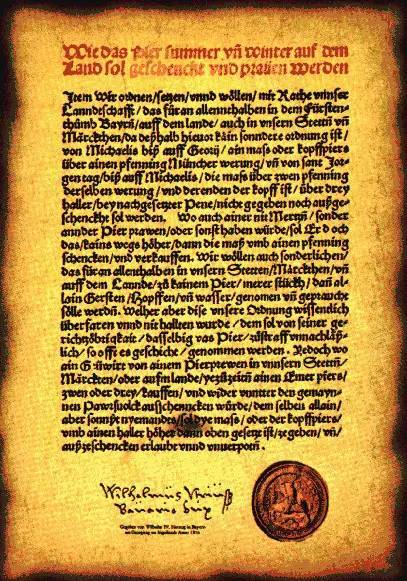 Wie das Pier summer vñ winter auf dem
Land sol geschenckt vnd prauen werden
Item Wir ordnen/setzen/vnnd wöllen/mit Rathe vnnser
Lanndtschafft/das für an allennthalben in dem Fürsten-
thůmb Bayrn/auff dem lande/auch in vnsern Stettñ vñ
Märckthen/da deßhalb hieuor kain sonndere ordnung ist/
von Michaelis biß auff Georij/ain mass oder kopffpiers
über ainen pfenning Müncher werung/vñ von sant Jor-
gen tag/biß auff Michaelis/die mass über zwen pfenning
derselben werung/vnd derenden der kopff ist/über drey
haller/bey nachgesetzter Pene/nicht gegeben noch außge-
schenckht sol werden. Wo auch ainer nit Mertzñ/sonder
annder Pier prawen/oder sonst haben würde/sol Er d och
das/kains wegs höher/dann die maß vmb ainen pfenning
schencken/vnd verkauffen. Wir wöllen auch sonderlichen/
das für an allenthalben in vnsern Stetten/Märckthen/vñ
auff dem Lannde/zů kainem Pier/merer stückh/dañ al-
lain Gersten/Hopffen/vñ wasser/genomen vñ gepraucht
sölle werdñ. Welher aber dise vnsere Ordnung wissendlich
überfaren vnnd nit hallten wurde/dem sol von seiner ge-
richtzöbrigkait/dasselbig vas Pier/zůstraff vnnachläß-
lich/so offt es geschicht/genommen werden. Jedoch wo
ain Gůwirt von ainem Pierprewen in vnnsern Stettñ/
Märckten/oder aufm lande/yezůzeitñ ainen Emer piers/
zwen oder drey/kauffen/vnd wider vnntter den gemayn-
nen Pawrsuolck ausschenncken würde/dem selben allain/
aber sonnßt nyemandts/sol dye mass/oder der kopffpiers/
vmb ainen haller höher dann oben gesetzt ist/zegeben/vñ/
außzeschencken erlaubt vnnd vnuerpotñ.
Wilhelmus
Gegeben von Wilhelm IV. Herzog in Bayern
am Georgitag zu Ingolstadt Anno 1516